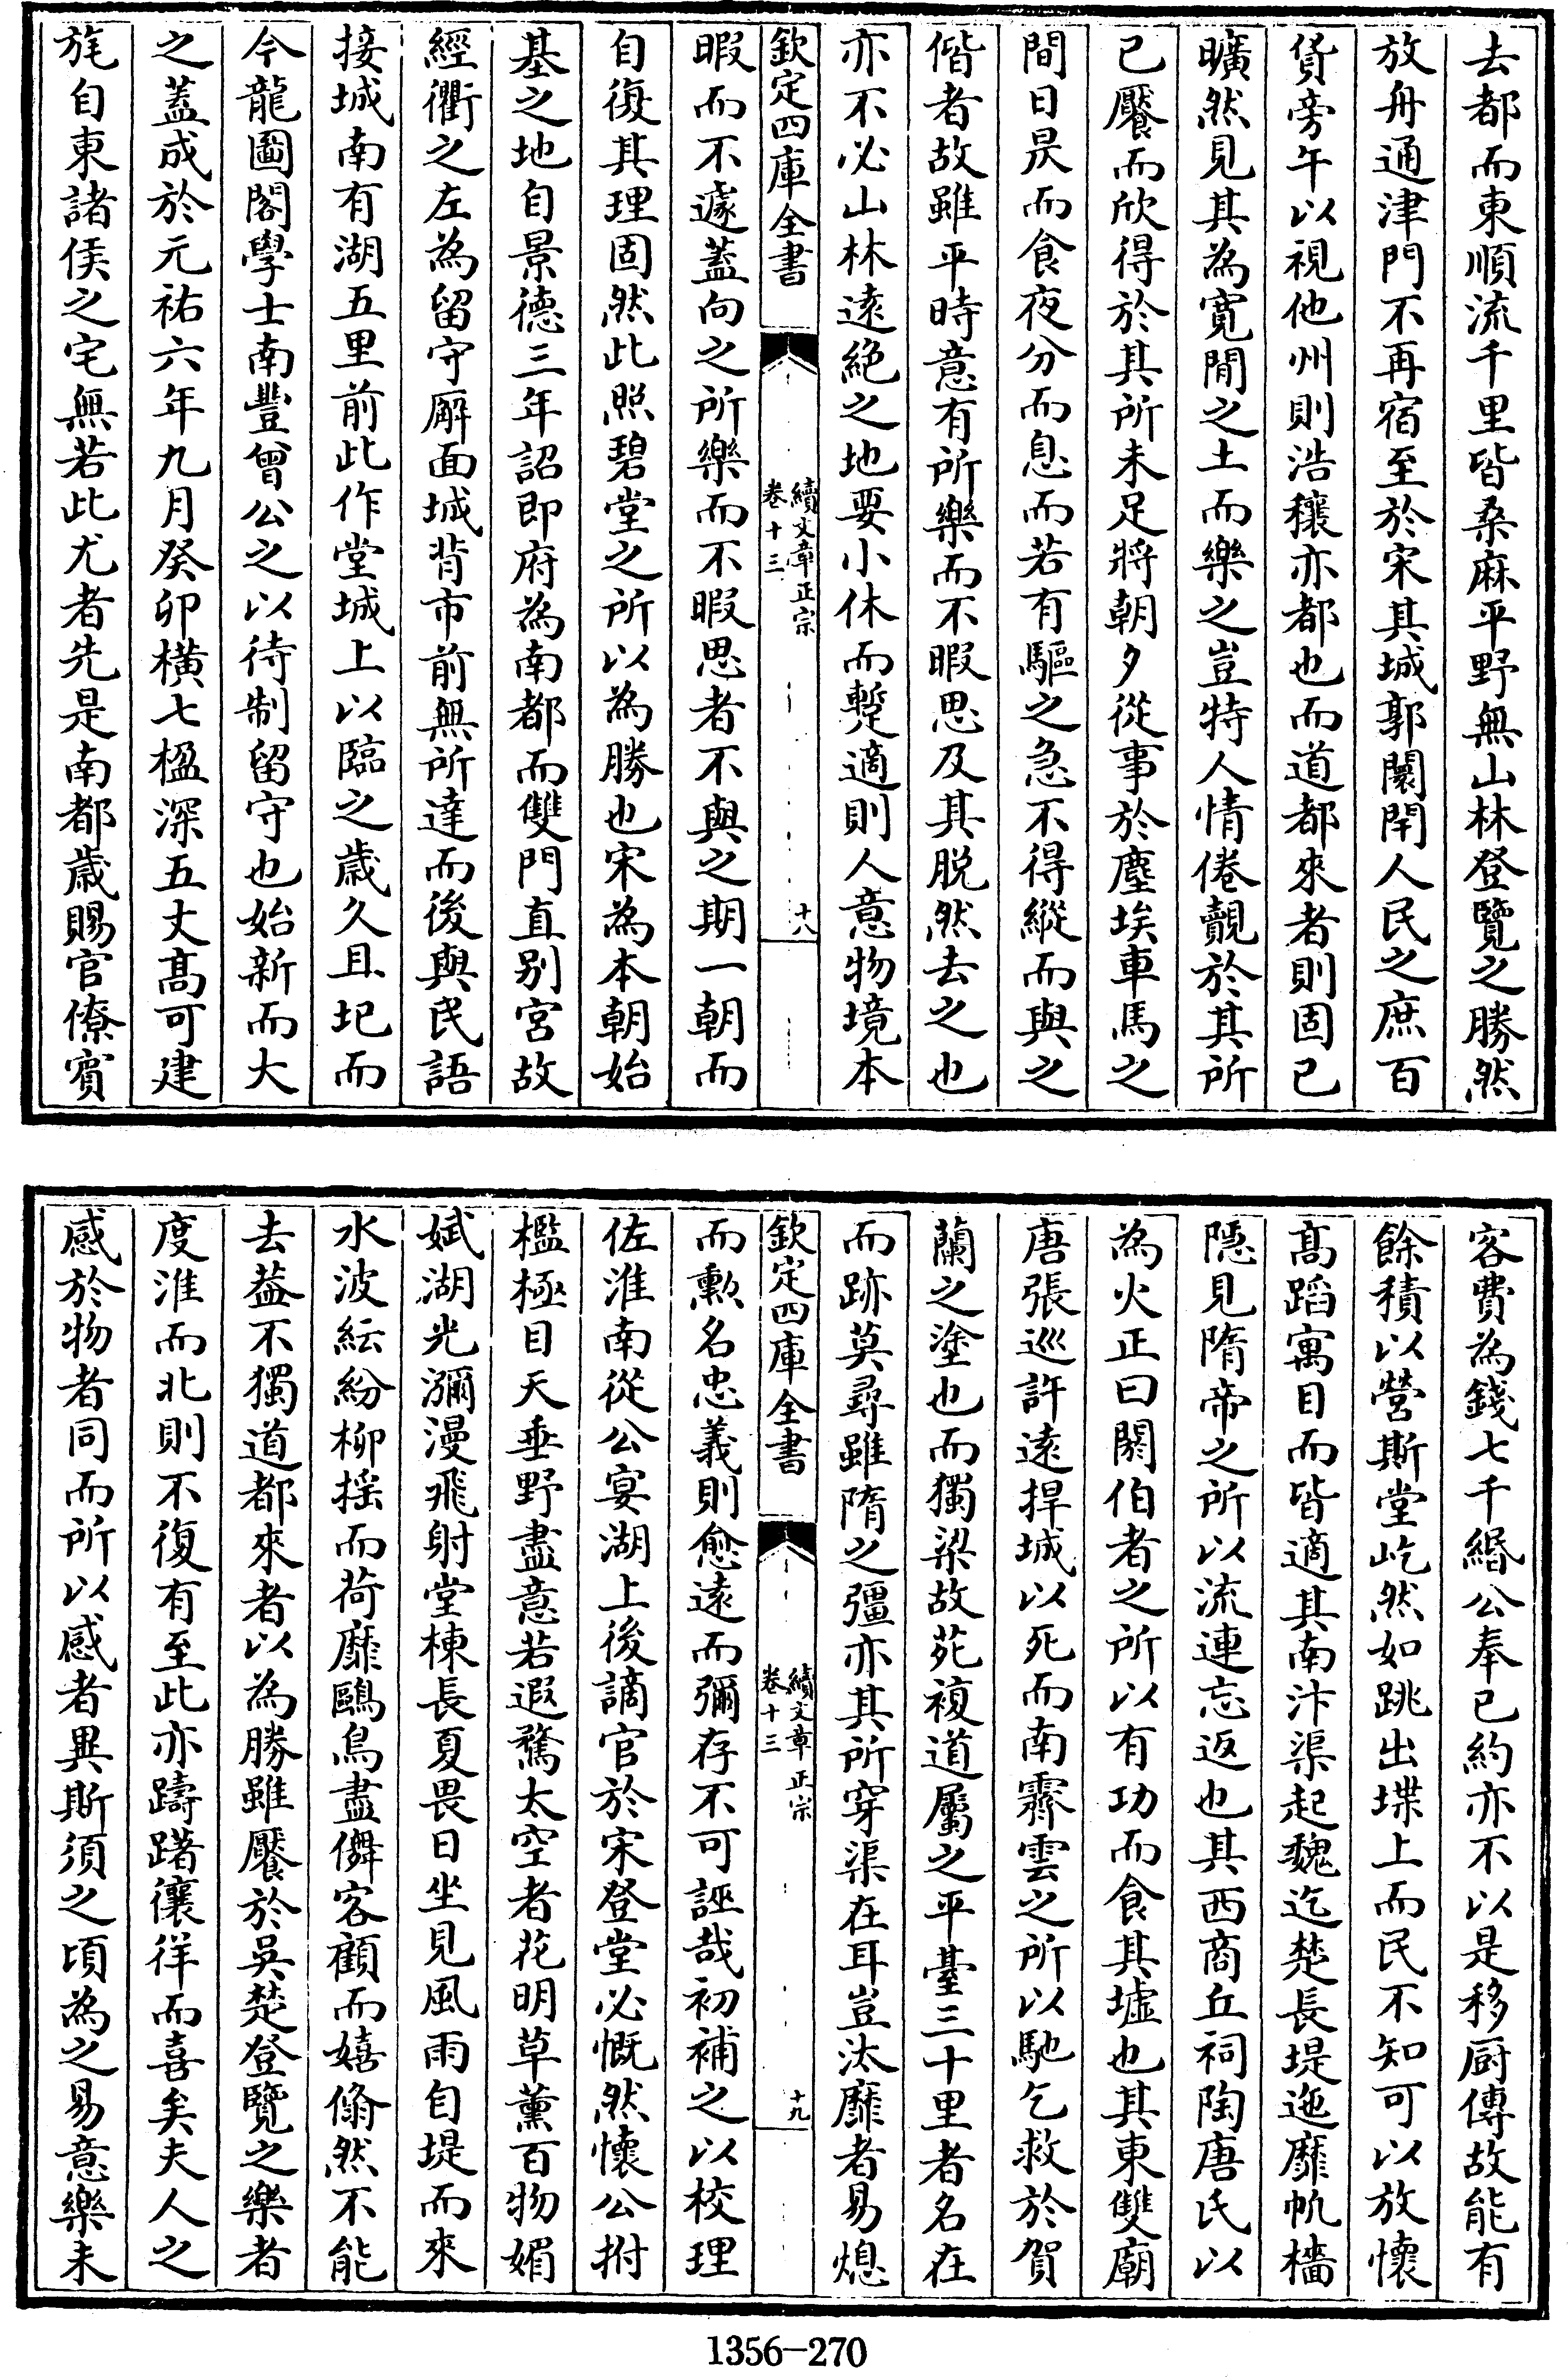 去都而東順流千里皆桑麻平野無山林登覽之勝然
放舟通津門不再宿至於宋其城郭闤閈人民之庶百
貨旁午以視他州則浩穰亦都也而道都來者則固已
曠然見其為寛閒之土而樂之豈特人情倦覿於其所
已饜而欣得於其所未足將朝夕從事於塵埃車馬之
間日昃而食夜分而息而若有驅之急不得縱而與之
偕者故雖平時意有所樂而不暇思及其脱然去之也
亦不必山林逺絶之地要小休而蹔適則人意物境本
欽定四庫全書
續文章正宗
卷十三
十八
暇而不遽蓋向之所樂而不暇思者不與之期一朝而
自復其理固然此照碧堂之所以為勝也宋為本朝始
基之地自景德三年詔即府為南都而雙門直别宮故
經衢之左為留守廨面城背市前無所達而後與民語
接城南有湖五里前此作堂城上以臨之歲久且圮而
今龍圖閣學士南豐曾公之以待制留守也始新而大
之蓋成於元祐六年九月癸卯横七楹深五丈髙可建
旄自東諸侯之宅無若此尤者先是南都歲賜官僚賓
客費為錢七千緡公奉已約亦不以是移厨傳故能有
餘積以營斯堂屹然如跳出堞上而民不知可以放懷
髙蹈寓目而皆適其南汴渠起魏迄楚長堤迤靡帆檣
隠見隋帝之所以流連忘返也其西商丘祠陶唐氏以
為火正曰閼伯者之所以有功而食其墟也其東雙廟
唐張巡許逺捍城以死而南霽雲之所以馳乞救於賀
蘭之塗也而獨梁故苑複道屬之平臺三十里者名在
而跡莫尋雖隋之彊亦其所穿渠在耳豈汰靡者易熄
欽定四庫全書
續文章正宗
卷十三
十九
而勲名忠義則愈逺而彌存不可誣哉初補之以校理
佐淮南從公宴湖上後謫官於宋登堂必慨然懷公拊
檻極目天垂野盡意若遐騖太空者花明草薰百物媚
娬湖光瀰漫飛射堂棟長夏畏日坐見風雨自堤而來
水波紜紛柳揺而荷靡鷗鳥盡儛客顧而嬉翛然不能
去葢不獨道都來者以為勝雖饜於吳楚登覽之樂者
度淮而北則不復有至此亦躊躇儴徉而喜矣夫人之
感於物者同而所以感者異斯須之頃為之易意樂未
1356-270